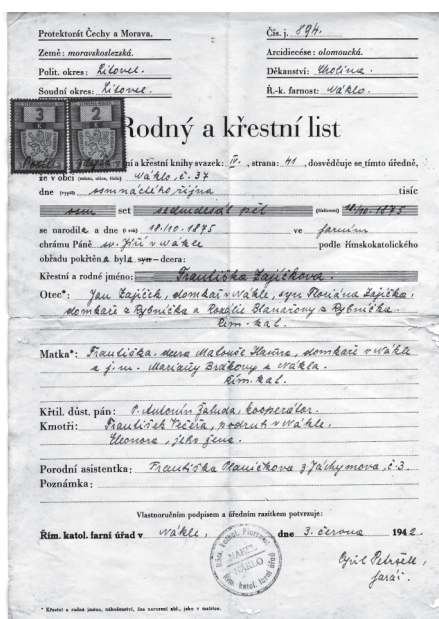 Protektorát Čechy a Morava. Čís. j. 894.
Země: moravskoslezská. Arcidiecése: olomoucká.
Polit. okres: Litovel. Děkanství: Cholina.
Soudní okres: Litovel. Ř.-k. farnost: Náklo.
3
2
Rodný a křestní list
a křestní knihy svazek: IV., strana: 41, dosvědčuje se tímto úředně,
že v obci (město, ulice, číslo) Náklo, č. 37
dne (vypiš) osmnáctého října tisíc
osm set sedmdesát pět (číslicemi) 18/10 1875
se narodila a dne 18/10 1875 ve farním
chrámu Páně sv. Jiří v Nákle podle římskokatolického
obřadu pokřtěna byla syn - dcera:
Křestní a rodné jméno: Františka Zajíčkova.
Otec*: Jan Zajíček, domkař v Nákle, syn Floriána Zajíčka,
domkaře z Rybníčka a Rozálie z Rybníčka.
Řím. kat.
Matka*: Františka, dcera Matouše domkaře v Nákle
a j. m. Mariany z Nákla.
Řím. kat.
Křtil důst. pán: P. Antonín kooperátor.
Kmotři: František v Nákle,
Eleonora, jeho žena.
Porodní asistentka: Františka z Jáchymova, č. 3.
Poznámka:
Vlastnoručním podpisem a úředním razítkem potvrzuje:
Řím. katol. farní úřad v Nákle, dne 3. června 1942.
NAKEL
NÁKLO
Řím. katol. farní úřad
Cyril
farář.
* Křestní a rodné jméno, náboženství, den narození atd., jako v matrice.